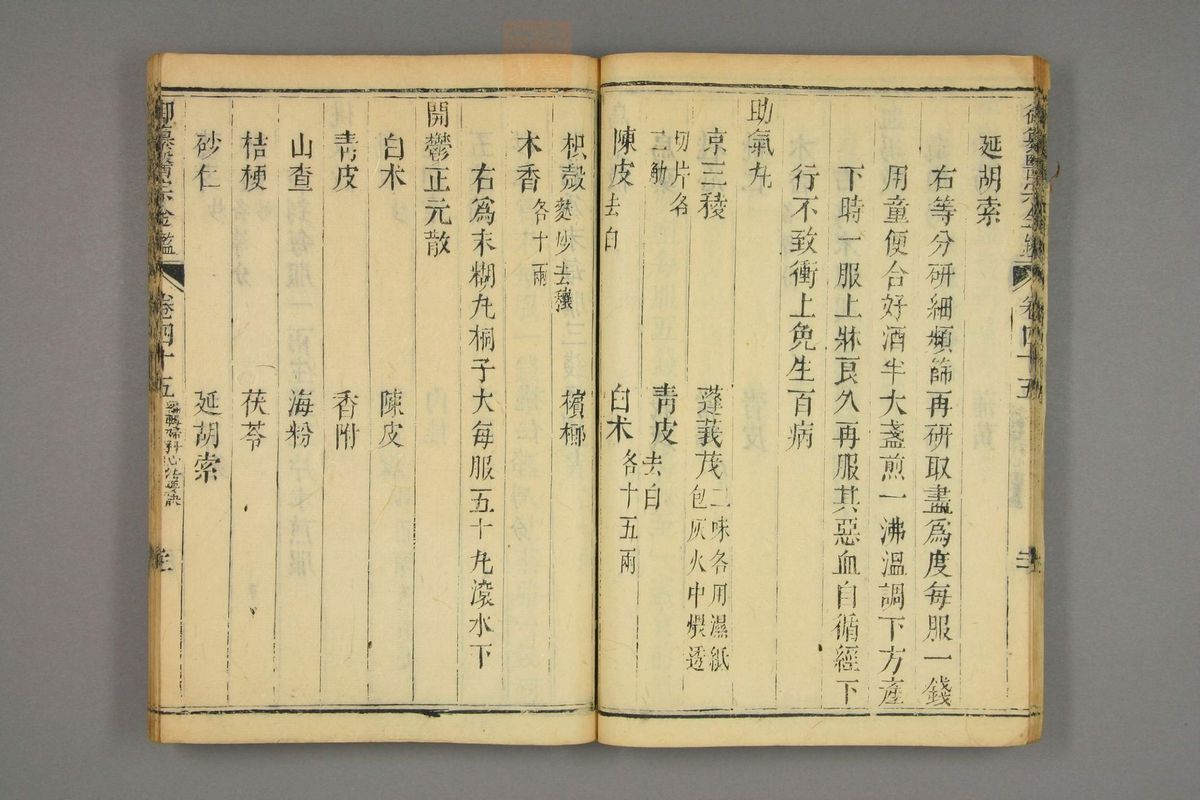 延胡索
右等分研細頻篩再研取盡爲度每服一錢
用童便合好酒半大盞煎一沸溫調下方產
下時一服上牀良久再服其惡血自循經下
行不致衝上免生百病
助氣丸
京三稜 蓬莪茂二味各用濕紙
包灰火中煨透
切片各
二觔 青皮去白
陳皮去白 白朮各十五兩
枳殼麩炒去穰 檳榔
木香各十兩
右爲末糊丸桐子大每服五十丸滾水下
開鬱正元散
白朮 陳皮
青皮 香附
山查 海粉
桔梗 茯苓
砂仁 延胡索
御纂醫宗金鑑 卷四十五